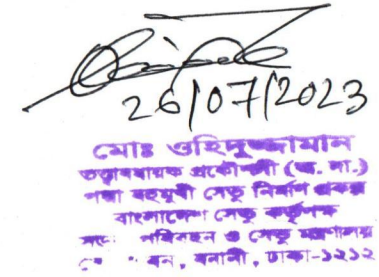 26/07/2023
মোঃ ওহিদুজ্জামান
তত্ত্বাবধায়ক প্রকৌশলী (অ. দা.)
পদ্মা বহুমুখী সেতু নির্মাণ প্রকল্প
বাংলাদেশ সেতু কর্তৃপক্ষ
পরিবহন ও সেতু মন্ত্রণালয়
বনানী, ঢাকা-১২১২